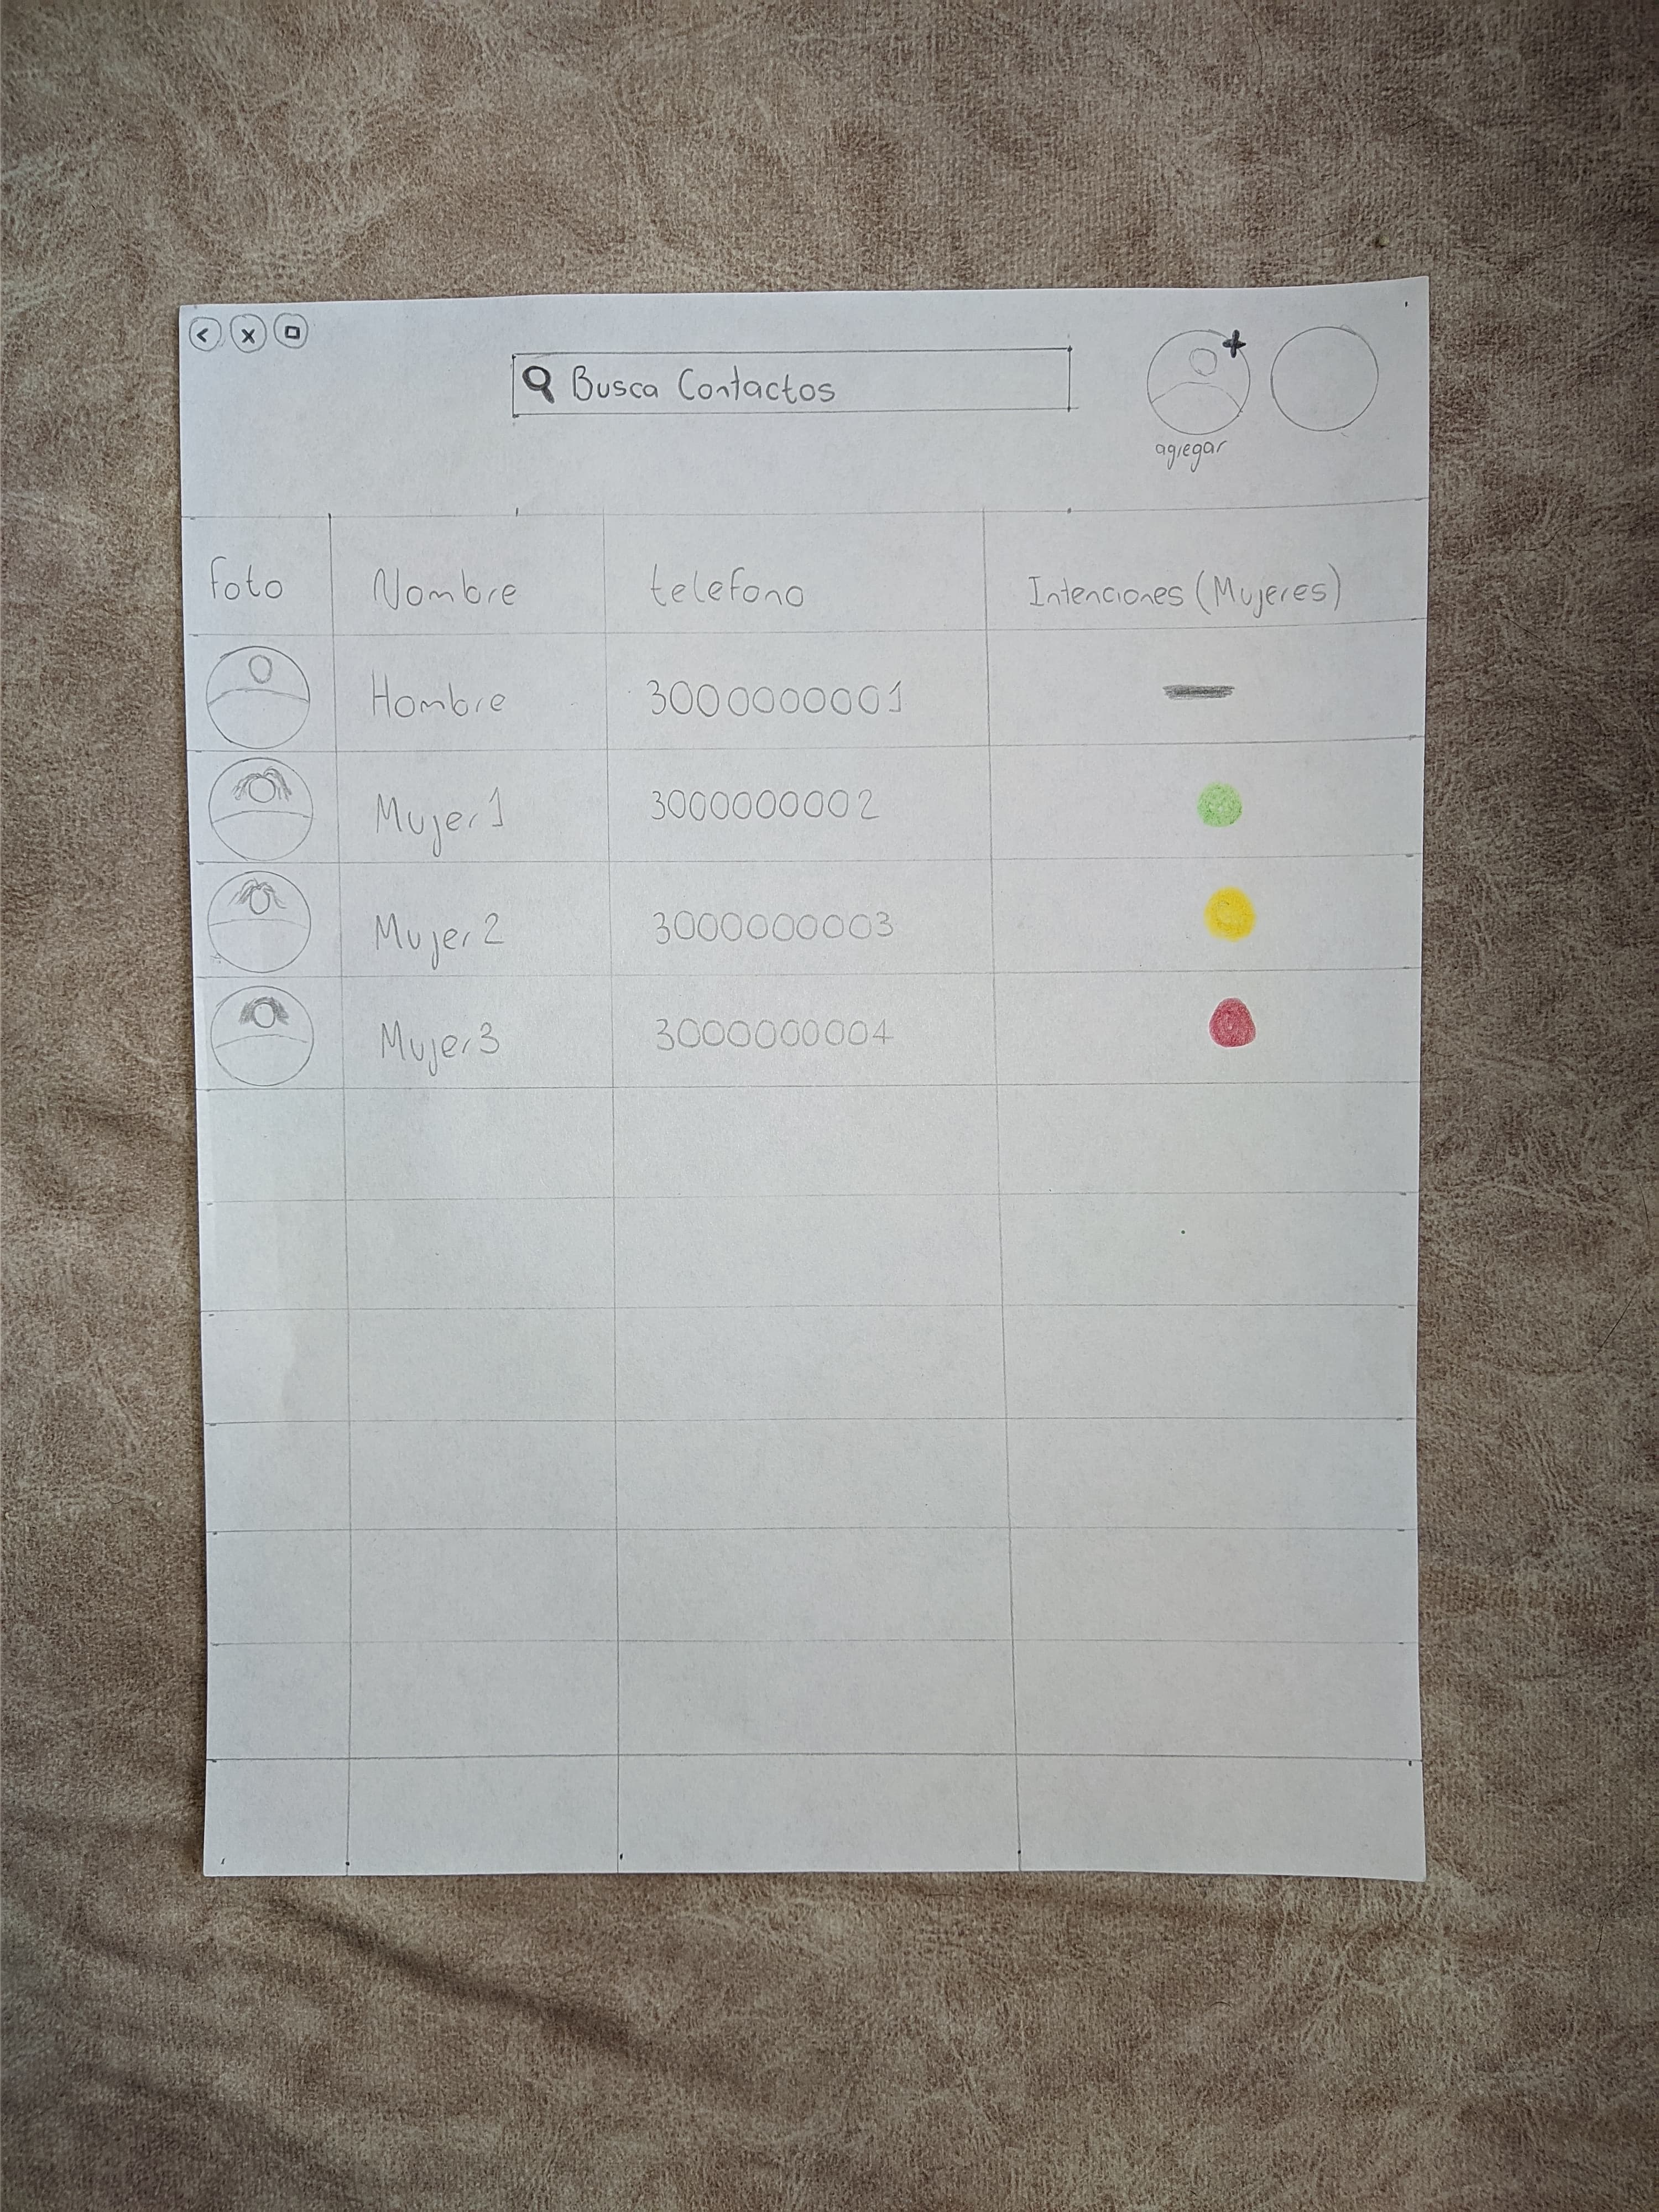 Busca Contactos
agregar
foto Nombre telefono Intenciones (Mujeres)
Hombre 3000000001
Mujer 1 3000000002
Mujer 2 3000000003
Mujer 3 3000000004